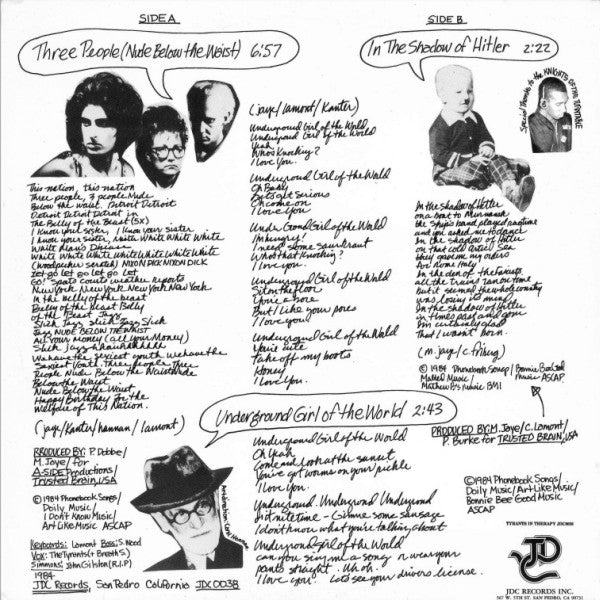 SIDE A
Three People (Nude Below the Waist) 6:57
This nation, this nation
Three people, 3 people, Nude
Below the waist. Detroit Detroit
Detroit Detroit Detroit in
The Belly of the Beast (5X)
I know your sister, I know your sister
I know your sister, Mista White White White
White Means Disease
White White White White White White White
(Woodpecker sound) NIXON DICK NIXON DICK
Let go Let go Let go Let go
Go! Spots Courts weather reports
New York New York New York New York
In the belly of the beast
Belly of the Beast Belly
of the Beast Jazz
Slick Jazz Slick Jazz Slick
Jazz NUDE BELOW THE WAIST
All your Money (all your Money)
Slick Jazz
We have the sexiest youth we have the
Sexiest Youth Three people Three
People Nude Below the Waist Nude
Below the Waist
Nude Below the Waist.
Happy Birthday for the
Welfare of This Nation.
(jaye/Kanter/hannan/lamont)
PRODUCED BY: P. Dobbe/
M. Jaye/ for
A-SIDE Productions/
Trusted Brain, USA
© 1984 Phonebook Songs/
Doily Music/
I Don't Know Music/
Art Like Music ASCAP
Keyboards: Lamont Bass: S. Nood
Vox: The Tyrants (+ Breath S)
Simmons: John Gilston (R.I.P)
1984
JDC Records, San Pedro California JDC 0038
(jaye/lamont/Kanter)
Underground Girl of the World
Underground Girl of the World
Yeah
Who's Knocking?
I Love You.
Underground Girl of the World
Oh Baby
But Get Serious
Oh come on
I Love You
Underground Girl of the World
I'm hungry!
I need some sauerkraut
Who's that Knocking?
I love you.
Underground Girl of the World
Sit on the floor
You're a bore
But I Like your pores
I love you!
Underground Girl of the World
You're cute
Take off my boots
Honey
I Love You.
Underground Girl of the World 2:43
Underground Girl of the World
Oh Yeah
Come and Look at the sunset
You've got worms on your pickle
I Love You.
Underground. Underground Underground
Hit nite time - Gimme some sausage
I don't know what you're talking about
Underground Girl of the World
Can you sing me a song or wear your
pants straight. Uh oh.
I Love you. Lets see your drivers license.
SIDE B
In The Shadow of Hitler 2:22
Special Thanks to the KNIGHTS OF THE TURNTABLE
In the shadow of Hitler
on a boat to Murmansk
the ships band played ragtime
and you asked me to dance
In the shadow of Hitler
on that cold Artic Sea
they gave me my orders
for Rome Italy
In the den of the Fascists
all the trains ran on time
but it seemed the whole country
was losing its mind
In the shadow of Hitler
in times past and gone
I'm certainly glad
that I wasn't born.
(m. jaye/c. friberg)
© 1984 Phonebook Songs/ Bonnie Bee Good
Music. ASCAP
BMI
PRODUCED BY: M. Jaye/C. Lamont/
P. Burke for TRUSTED BRAIN, USA
© 1984 Phonebook Songs/
Doily Music/Art Like Music/
Bonnie Bee Good Music
ASCAP
TYRANTS IN THERAPY JDC0038
JDC
JDC RECORDS INC.
567 W. 5TH ST. SAN PEDRO, CA 90731